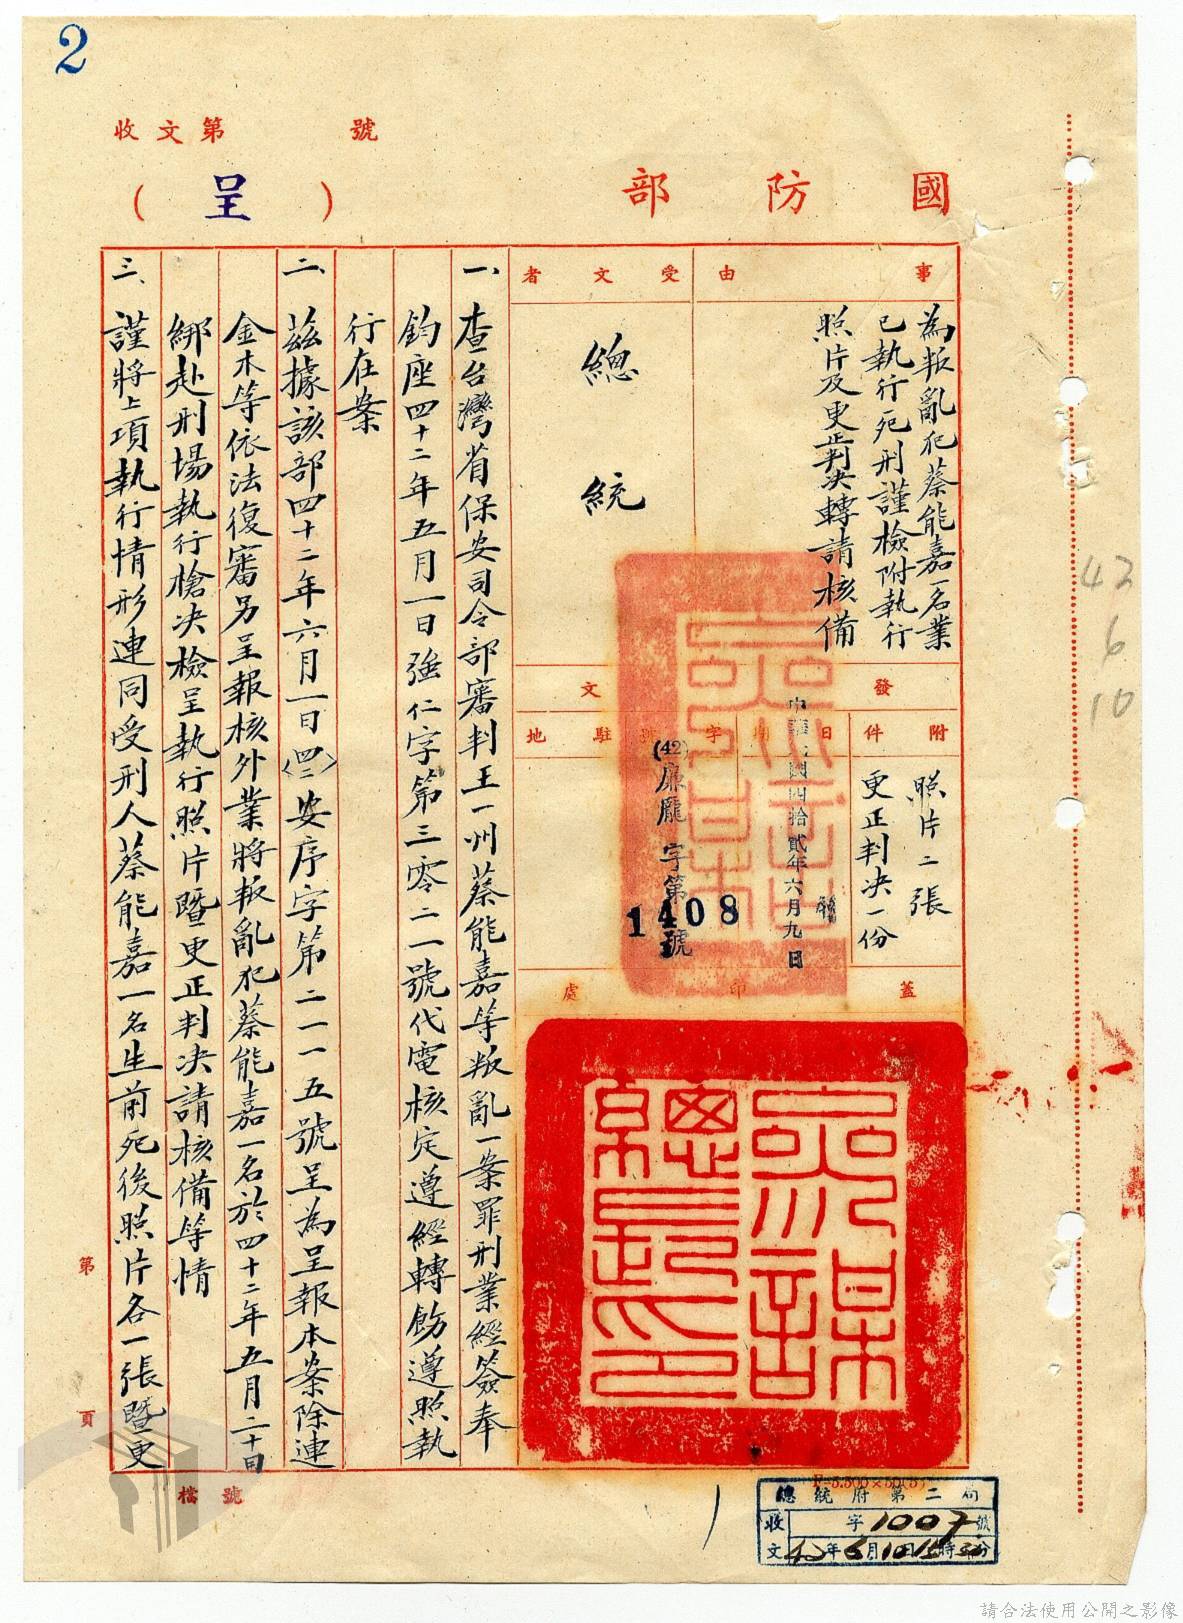 2
收文第 號
國防部
(呈)
事由
為叛亂犯蔡能嘉一名業
已執行死刑謹檢附執行
照片及更正判決轉請核備
受文者
總統
發文
附件
照片二張
更正判決一份
日期
中華民國四拾貳年六月九日
字號
(42)廉龐字第1408號
駐地
蓋印處
參謀總長之印
一、查台灣省保安司令部審判王一州蔡能嘉等叛亂一案罪刑業經簽奉
鈞座四十二年五月一日強仁字第三零二一號代電核定遵經轉飭遵照執
行在案
二、茲據該部四十二年六月一日〈四二〉安序字第二一一五號呈為呈報本案除連
金木等依法復審另呈報核外業將叛亂犯蔡能嘉一名於四十二年五月二十日
綁赴刑場執行槍決檢呈執行照片暨更正判決請核備等情
三、謹將上項執行情形連同受刑人蔡能嘉一名生前死後照片各一張暨更
第 頁
檔號
42
6
10
總統府第二局
收文 字1007號
42年6月10日15時 分
請合法使用公開之影像